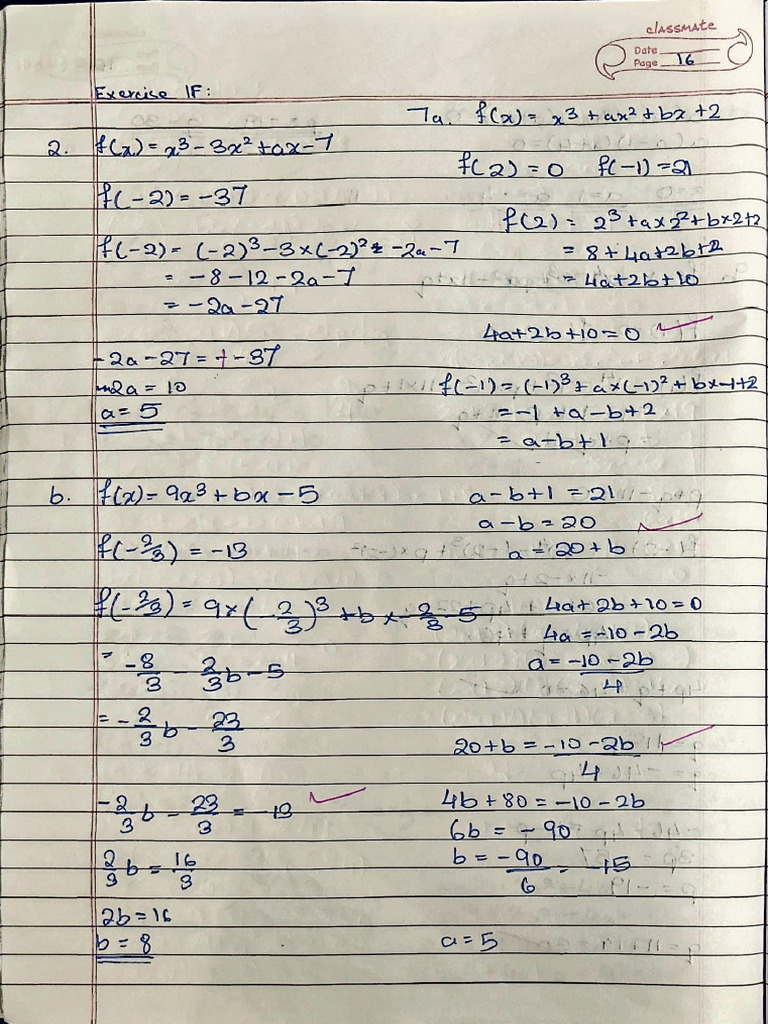 classmate
Date
Page 16
Exercise 1F:
2. f(x) = x³ - 3x² + ax - 7
f(-2) = -37
f(-2) = (-2)³ - 3 × (-2)² + -2a - 7
= -8 - 12 - 2a - 7
= -2a - 27
-2a - 27 = -37
-2a = 10
a = 5
b. f(x) = 9x³ + bx - 5
f(-2/3) = -13
f(-2/3) = 9 × (-2/3)³ + b × -2/3 - 5
= -8/3 - 2/3b - 5
= -2/3b - 23/3
-2/3b - 23/3 = -13
2/3b = 16/3
2b = 16
b = 8
7a. f(x) = x³ + ax² + bx + 2
f(2) = 0 f(-1) = 21
f(2) = 2³ + a × 2² + b × 2 + 2
= 8 + 4a + 2b + 2
= 4a + 2b + 10
4a + 2b + 10 = 0
f(-1) = (-1)³ + a × (-1)² + b × -1 + 2
= -1 + a - b + 2
= a - b + 1
a - b + 1 = 21
a - b = 20
a = 20 + b
4a + 2b + 10 = 0
4a = -10 - 2b
a = -10 - 2b/4
20 + b = -10 - 2b/4
4b + 80 = -10 - 2b
6b = -90
b = -90/6 = -15
a = 5